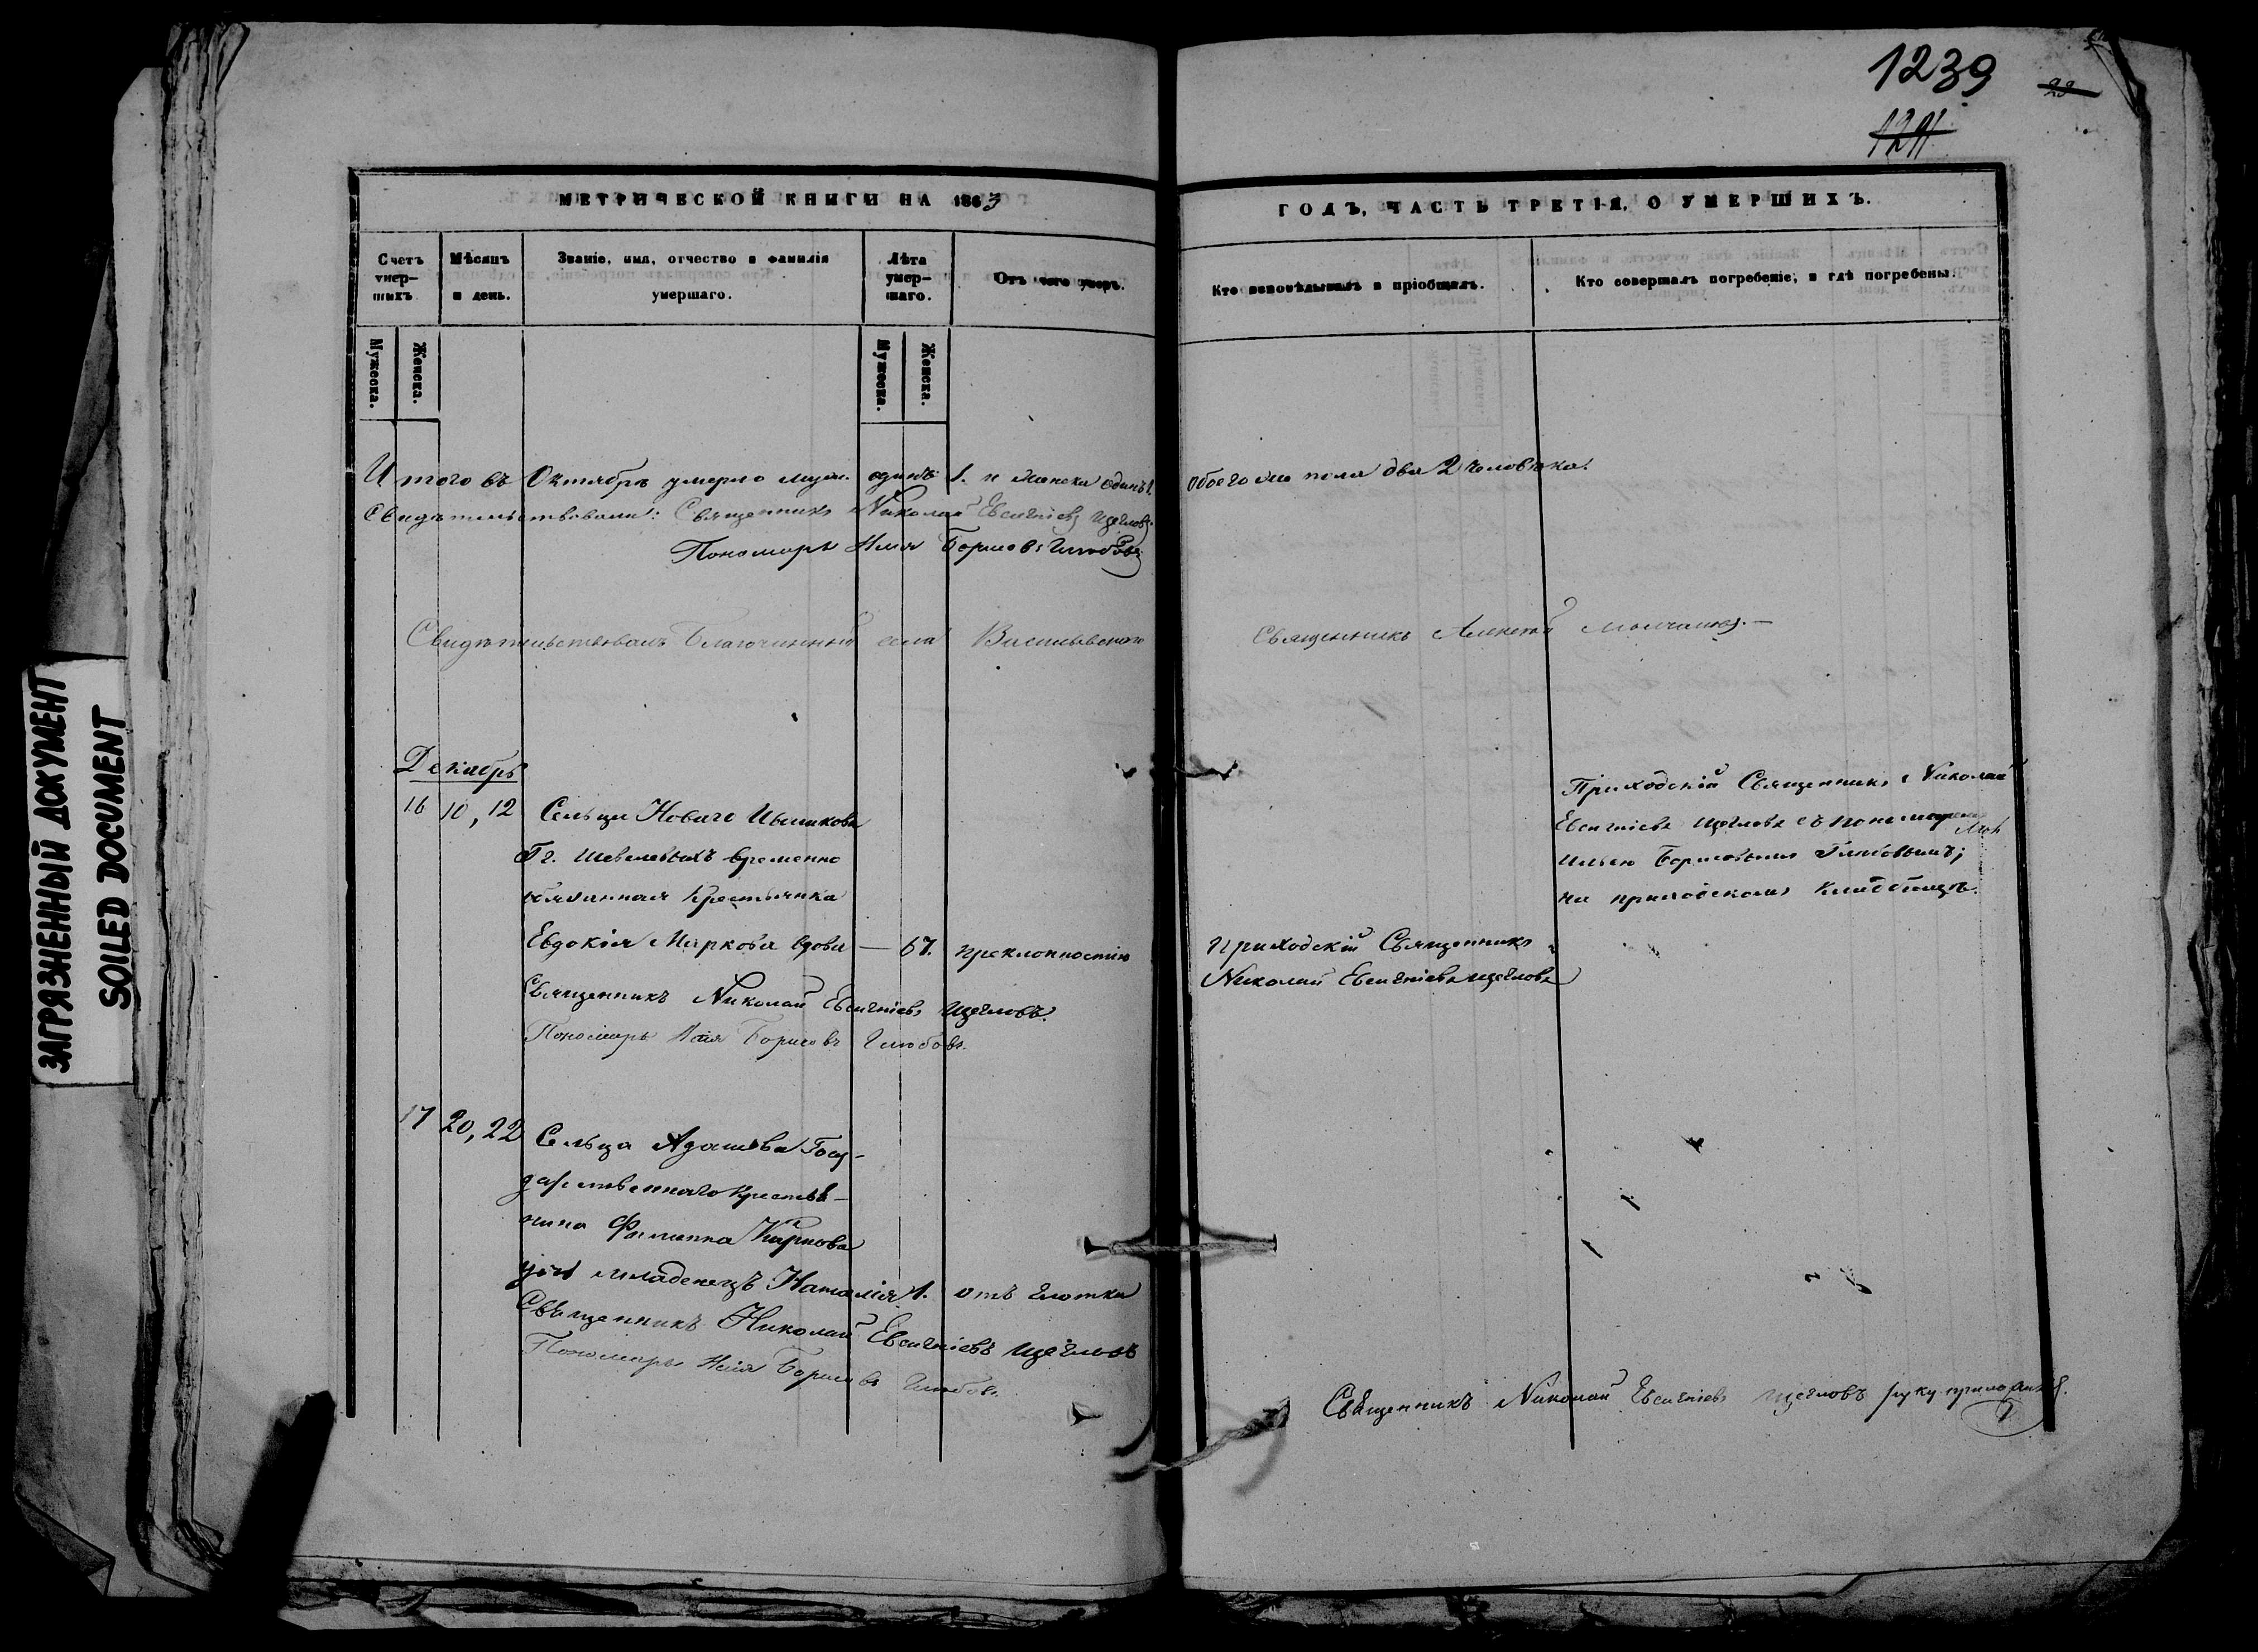 1239
29
1291
ЗАГРЯЗНЕННЫЙ ДОКУМЕНТ
SOILED DOCUMENT
МЕТРИЧЕСКОЙ КНИГИ НА 1863
ГОДЪ, ЧАСТЬ ТРЕТІЯ, О УМЕРШИХЪ.
Счетъ умер-шихъ.
Мѣсяцъ и день.
Званіе, имя, отчество и фамилія умершаго.
Лѣта умер-шаго.
Отъ чего умеръ.
Кто исповѣдывалъ и пріобщалъ.
Кто совершалъ погребеніе, и гдѣ погребены.
Мужеска.
Женска.
Мужеска.
Женска.
Итого въ Октябрѣ умерло муж. одинъ 1. и женска одинъ 1. обоего же пола два 2 человѣка.
Свидѣтельствовали: Священникъ Николай Евсигніевъ Щегловъ
Пономарь Илія Борисовъ Глѣбовъ
Свидѣтельствовалъ Благочинный села Васильевскаго Священникъ Алексей Молчановъ.—
Декабрь
16 10, 12 Сельца Новаго
Гг. Шевелевыхъ временно
обязанная крестьянка
Евдокія Маркова вдова — 67. преклонностію
Приходскій Священникъ
Николай Евсигніевъ Щегловъ
Приходскій Священникъ Николай
Евсигніевъ Щегловъ съ пономаремъ
Ильею Борисовымъ Глѣбовымъ;
на приходскомъ кладбищѣ.
Священникъ Николай Евсигніевъ Щегловъ.
Пономарь Илія Борисовъ Глѣбовъ.
17 20, 22 Сельца Адашева Госу-
дарственнаго крестья-
нина Филиппа Карпова
дочь младенецъ Наталія 1. отъ глотки
Священникъ Николай Евсигніевъ Щегловъ
Пономарь Илія Борисовъ Глѣбовъ.
Священникъ Николай Евсигніевъ Щегловъ руку приложилъ.